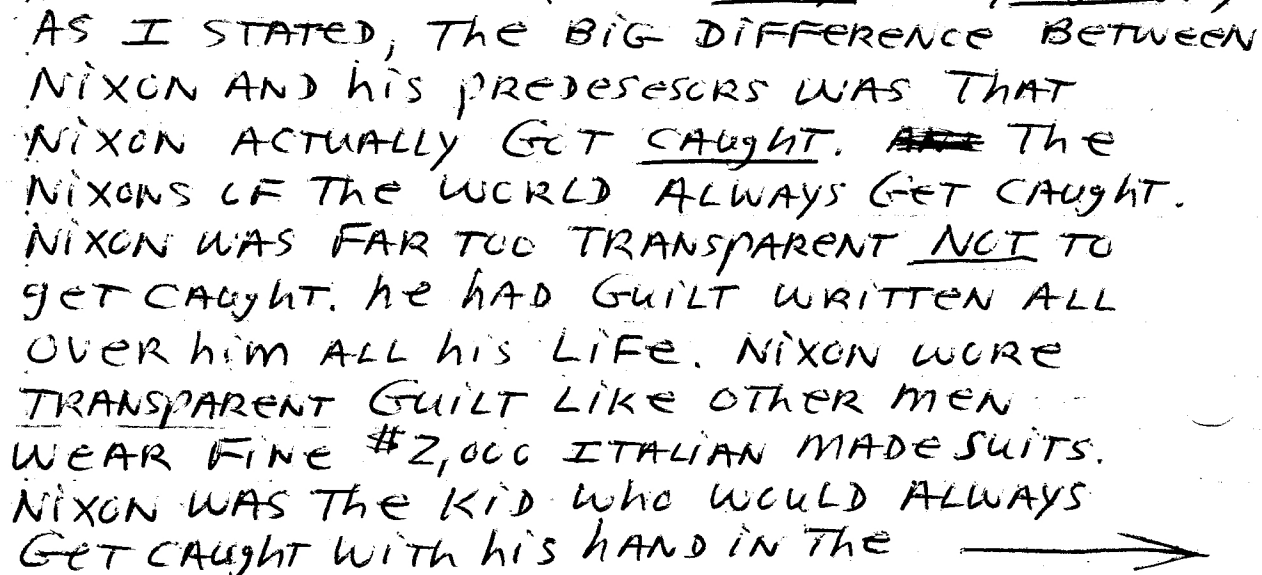 AS I STATED, The BiG DiFFeReNce BeTWeeN
NiXON AND his pReDeSesORS WAS ThAT
NiXON ACTUALLY GOT CAughT. The
NiXONS OF The WORLD ALWAYS GeT CAughT.
NiXON WAS FAR TOO TRANSpAReNT NOT TO
geT CAughT. he hAD GuiLT WRiTTeN ALL
OVeR him ALL his LiFe. NiXON WORe
TRANSpAReNT GuiLT Like OTheR meN
WeAR FiNe #2,000 ITALiAN MADe SuiTS.
NiXON WAS The KiD Who WOuLD ALWAYS
GeT CAughT WiTh his hAND iN The →